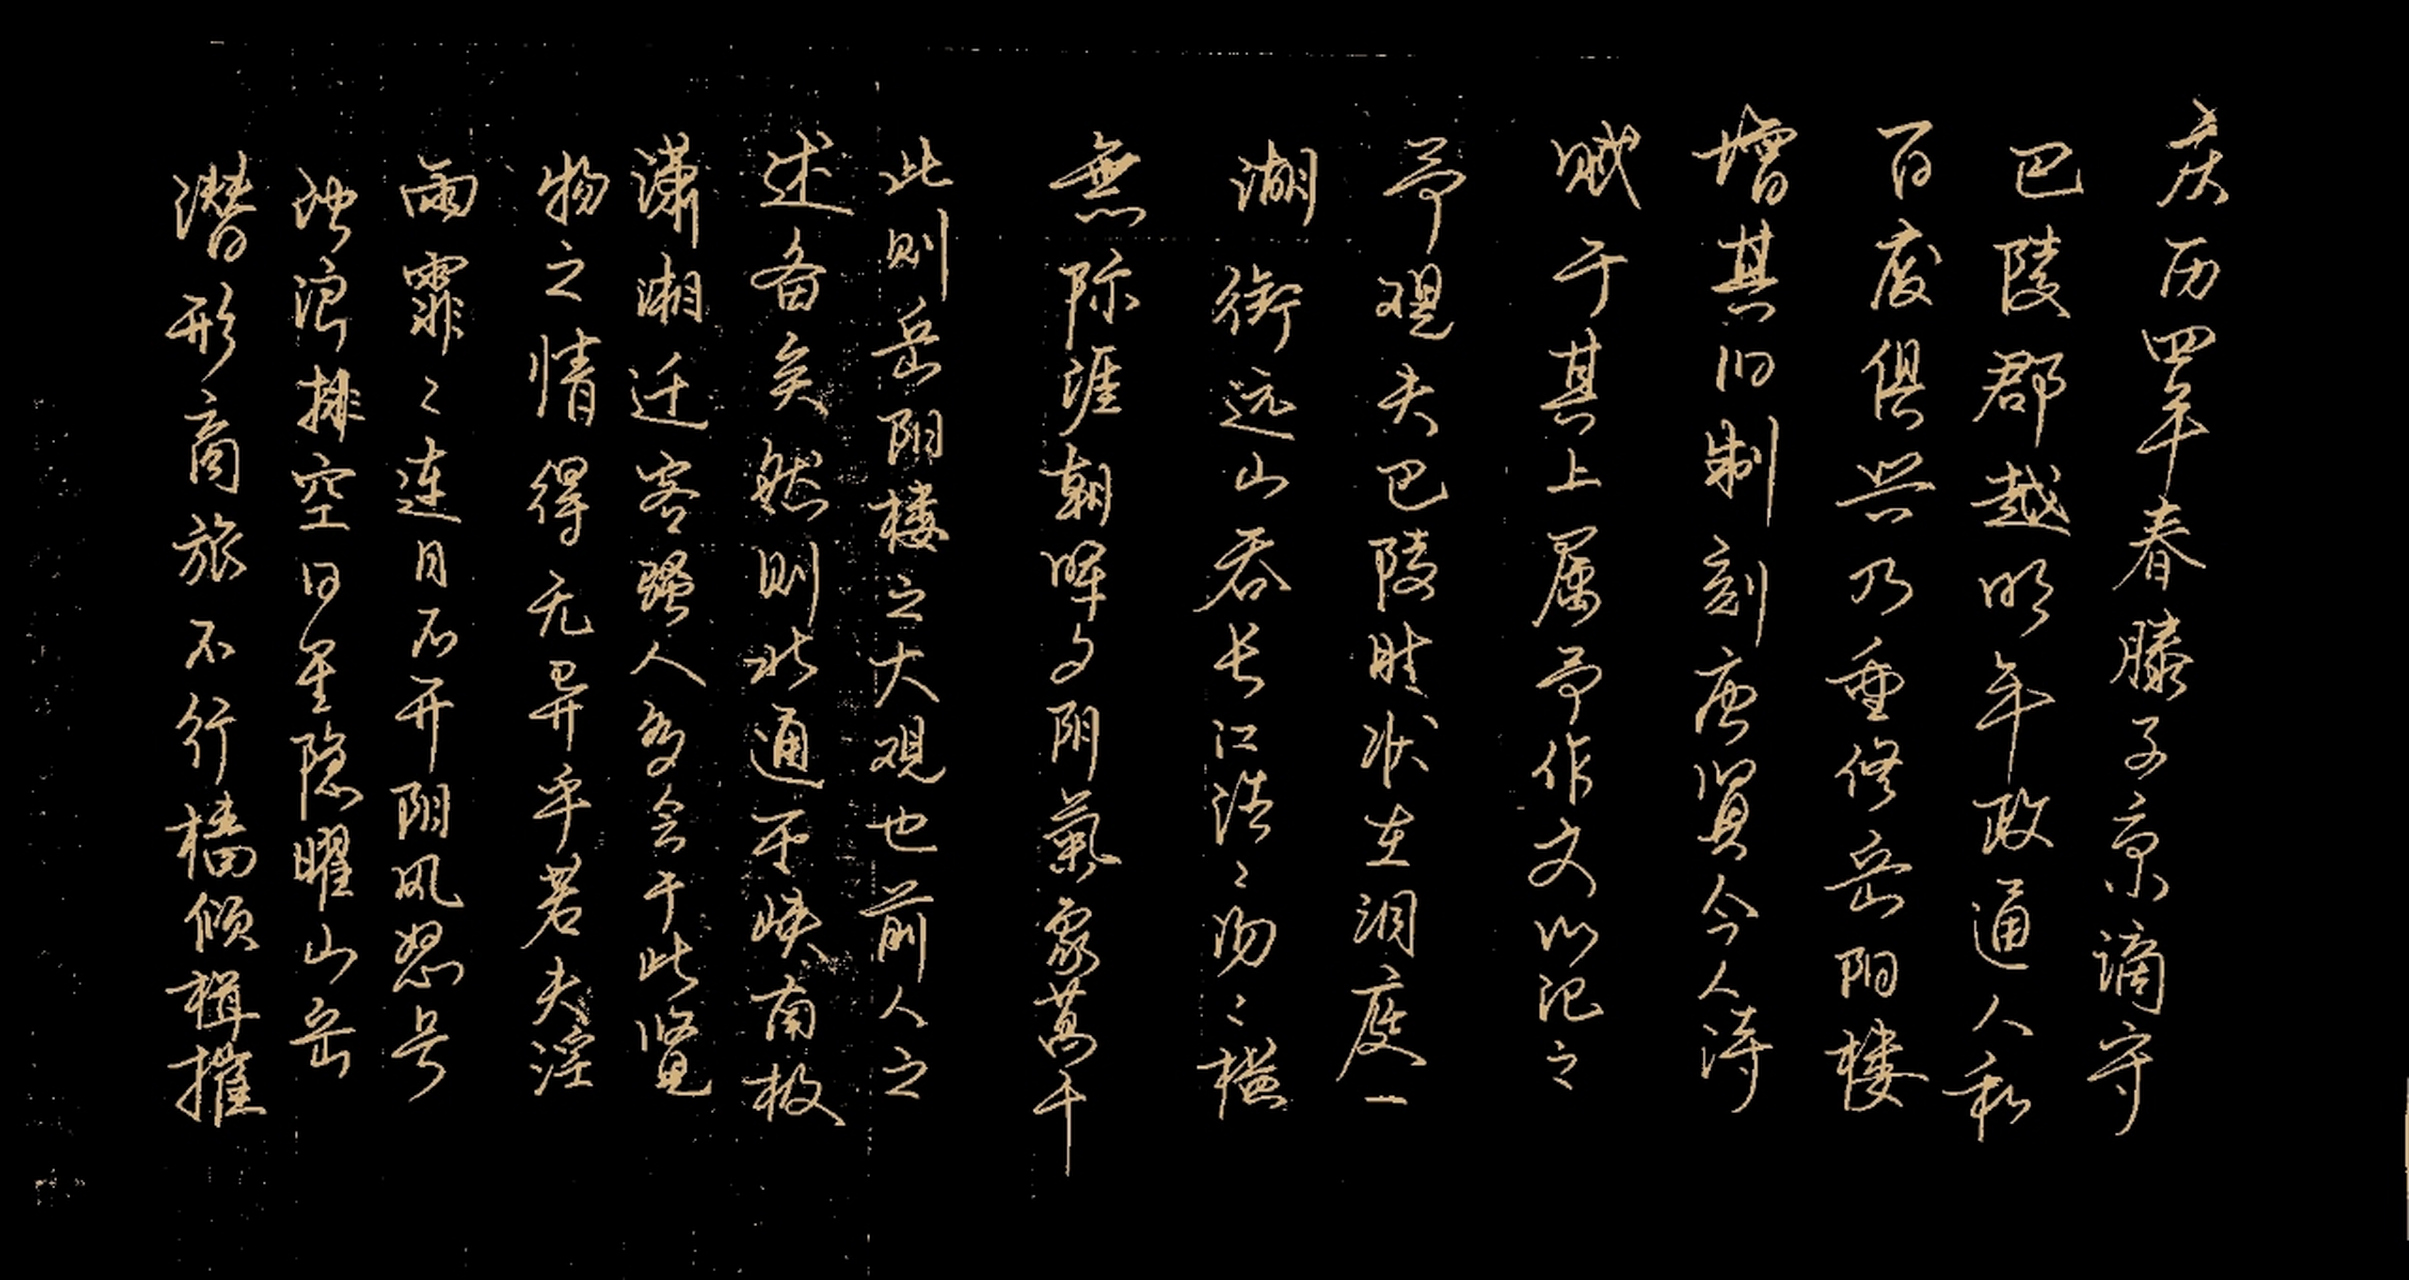 庆历四年春滕子京谪守
巴陵郡越明年政通人和
百废俱兴乃重修岳阳楼
增其旧制刻唐贤今人诗
赋于其上属予作文以记之
予观夫巴陵胜状在洞庭一
湖衔远山吞长江浩〻汤〻横
無际涯朝晖夕阴氣象萬千
此则岳阳楼之大观也前人之
述备矣然则北通巫峡南极
潇湘迁客骚人多会于此览
物之情得无异乎若夫淫
雨霏〻连月不开阴风怒号
浊浪排空日星隐曜山岳
潜形商旅不行樯倾楫摧